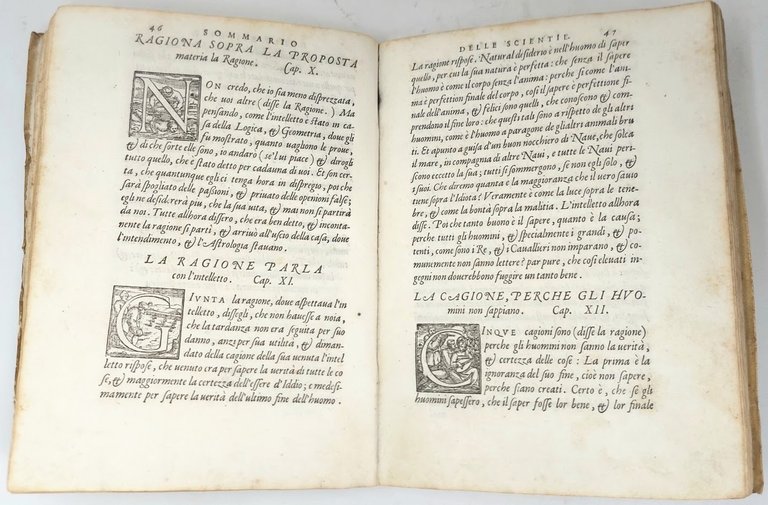 46
SOMMARIO
RAGIONA SOPRA LA PROPOSTA
materia la Ragione. Cap. X.
NON credo, che io sia meno disprezzata,
che uoi altre (disse la Ragione.) Ma
pensando, come l'intelletto è stato in ca-
sa della Logica, & Geometria, doue gli
fu mostrato, quanto uagliono le proue,
& di che sorte elle sono, io andarò (se'l ui piace) & dirogli
tutto quello, che è stato detto per cadauna di uoi. Et son cer-
ta, che quantunque egli ci tenga hora in dispregio, poi che
sarà spogliato delle passioni, & priuo delle openioni false;
egli ne desidererà piu, che la sua uita, & mai non si partirà
da noi. Tutte allhora dissero, che era ben detto, & inconta-
nente la ragione si partì, & arriuò all'uscio della casa, doue
l'intendimento, & l'Astrologia stauano.
LA RAGIONE PARLA
con l'intelletto. Cap. XI.
GIUNTA la ragione, doue aspettaua l'in
telletto, dissegli, che non hauesse a noia,
che la tardanza non era seguita per suo
danno, anzi per sua utilità, & diman-
dato della cagione della sua uenuta l'intel
letto rispose, che uenuto era per sapere la uerità di tutte le co
se, & maggiormente la certezza dell'essere d'Iddio; e medesi-
mamente per sapere la uerità dell'ultimo fine dell'huomo.
DELLE SCIENTIE. 47
La ragione rispose. Natural desiderio è nell'huomo di saper
quello, per cui la sua natura è perfetta: che senza il sapere
l'huomo è come il corpo senza l'anima: perche si come l'ani-
ma è perfettion finale del corpo, cosi il sapere è perfettione fi-
nale dell'anima, & felici sono quelli, che conoscono & com-
prendono il fine loro: che questi tali sono a rispetto de gli altri
huomini, come è l'huomo a paragone de gli altri animali bru
ti. Et apunto a guisa d'un buon nocchiero di Naue, che solca
il mare, in compagnia di altre Naui, e tutte le Naui peri-
scono per tempesta; tutti si sommergono, se non egli solo, &
i suoi. Che diremo quanta è la maggioranza che il uero sauio
tiene sopra l'Idiota? Veramente è come la luce sopra le tene-
bre, & come la bontà sopra la malitia. L'intelletto allhora
disse. Poi che tanto buono è il sapere, quanto è la causa;
perche tutti gli huomini, & specialmente i grandi, & po-
tenti, come sono i Re, & i Cauallieri non imparano, & co-
munemente non sanno lettere? par pure, che cosi eleuati in-
gegni non douerebbono fuggire un tanto bene.
LA CAGIONE, PERCHE GLI HVO-
mini non sappiano. Cap. XII.
CINQVE cagioni sono (disse la ragione)
perche gli huomini non sanno la uerità,
& certezza delle cose: La prima è la
ignoranza del suo fine, cioè non sapere,
perche siano creati. Certo è, che se gli
huomini sapessero, che il saper fosse lor bene, & lor finale